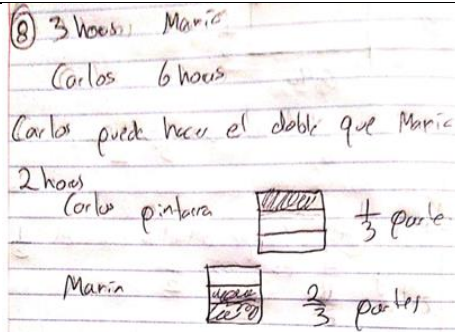 ⑧ 3 hours Maria
Carlos 6 hours
Carlos puede hacer el doble que Maria
2 hours
Carlos pintara 1/3 parte
Maria 2/3 partes